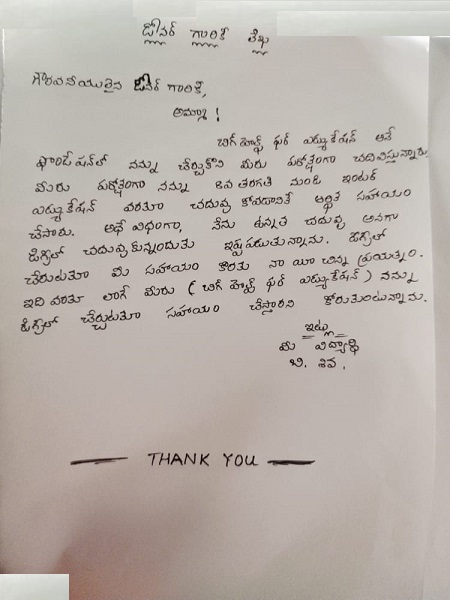 డ్లోనర్ గ్లారికి లేఖ్ల
గౌరవనీయులైన డోనర్ గారికి,
అమ్మా !
బిగ్ హెల్ప్ ఫర్ ఎడ్యుకేషన్ అనే
ఫౌండేషన్‌లో నన్ను చేర్చుకొని మీరు పరోక్షంగా చదివిస్తున్నారు
మీరు పరోక్షంగా నన్ను 8వ తరగతి నుండి ఇంటర్
ఎడ్యుకేషన్ వరకూ చదువు కోవడానికి ఆర్థిక సహాయం
చేసారు. అదే విధంగా, నేను ఉన్నత చదువు అనగా
డిగ్రీలో చదువుకున్నందుకు ఇష్టపడుతున్నాను. డిగ్రీలో
చేరుటకూ మీ సహాయం కొరకు నా యీ చిన్న ప్రయత్నం.
ఇది వరకూ లాగే మీరు ( బిగ్ హెల్ప్ ఫర్ ఎడ్యుకేషన్ ) నన్ను
డిగ్రీలో చేర్చుటకూ సహాయం చేస్తారని కోరుకుంటున్నాను.
ఇట్లు
మీ విద్యార్థి
బి. శివ .
THANK YOU